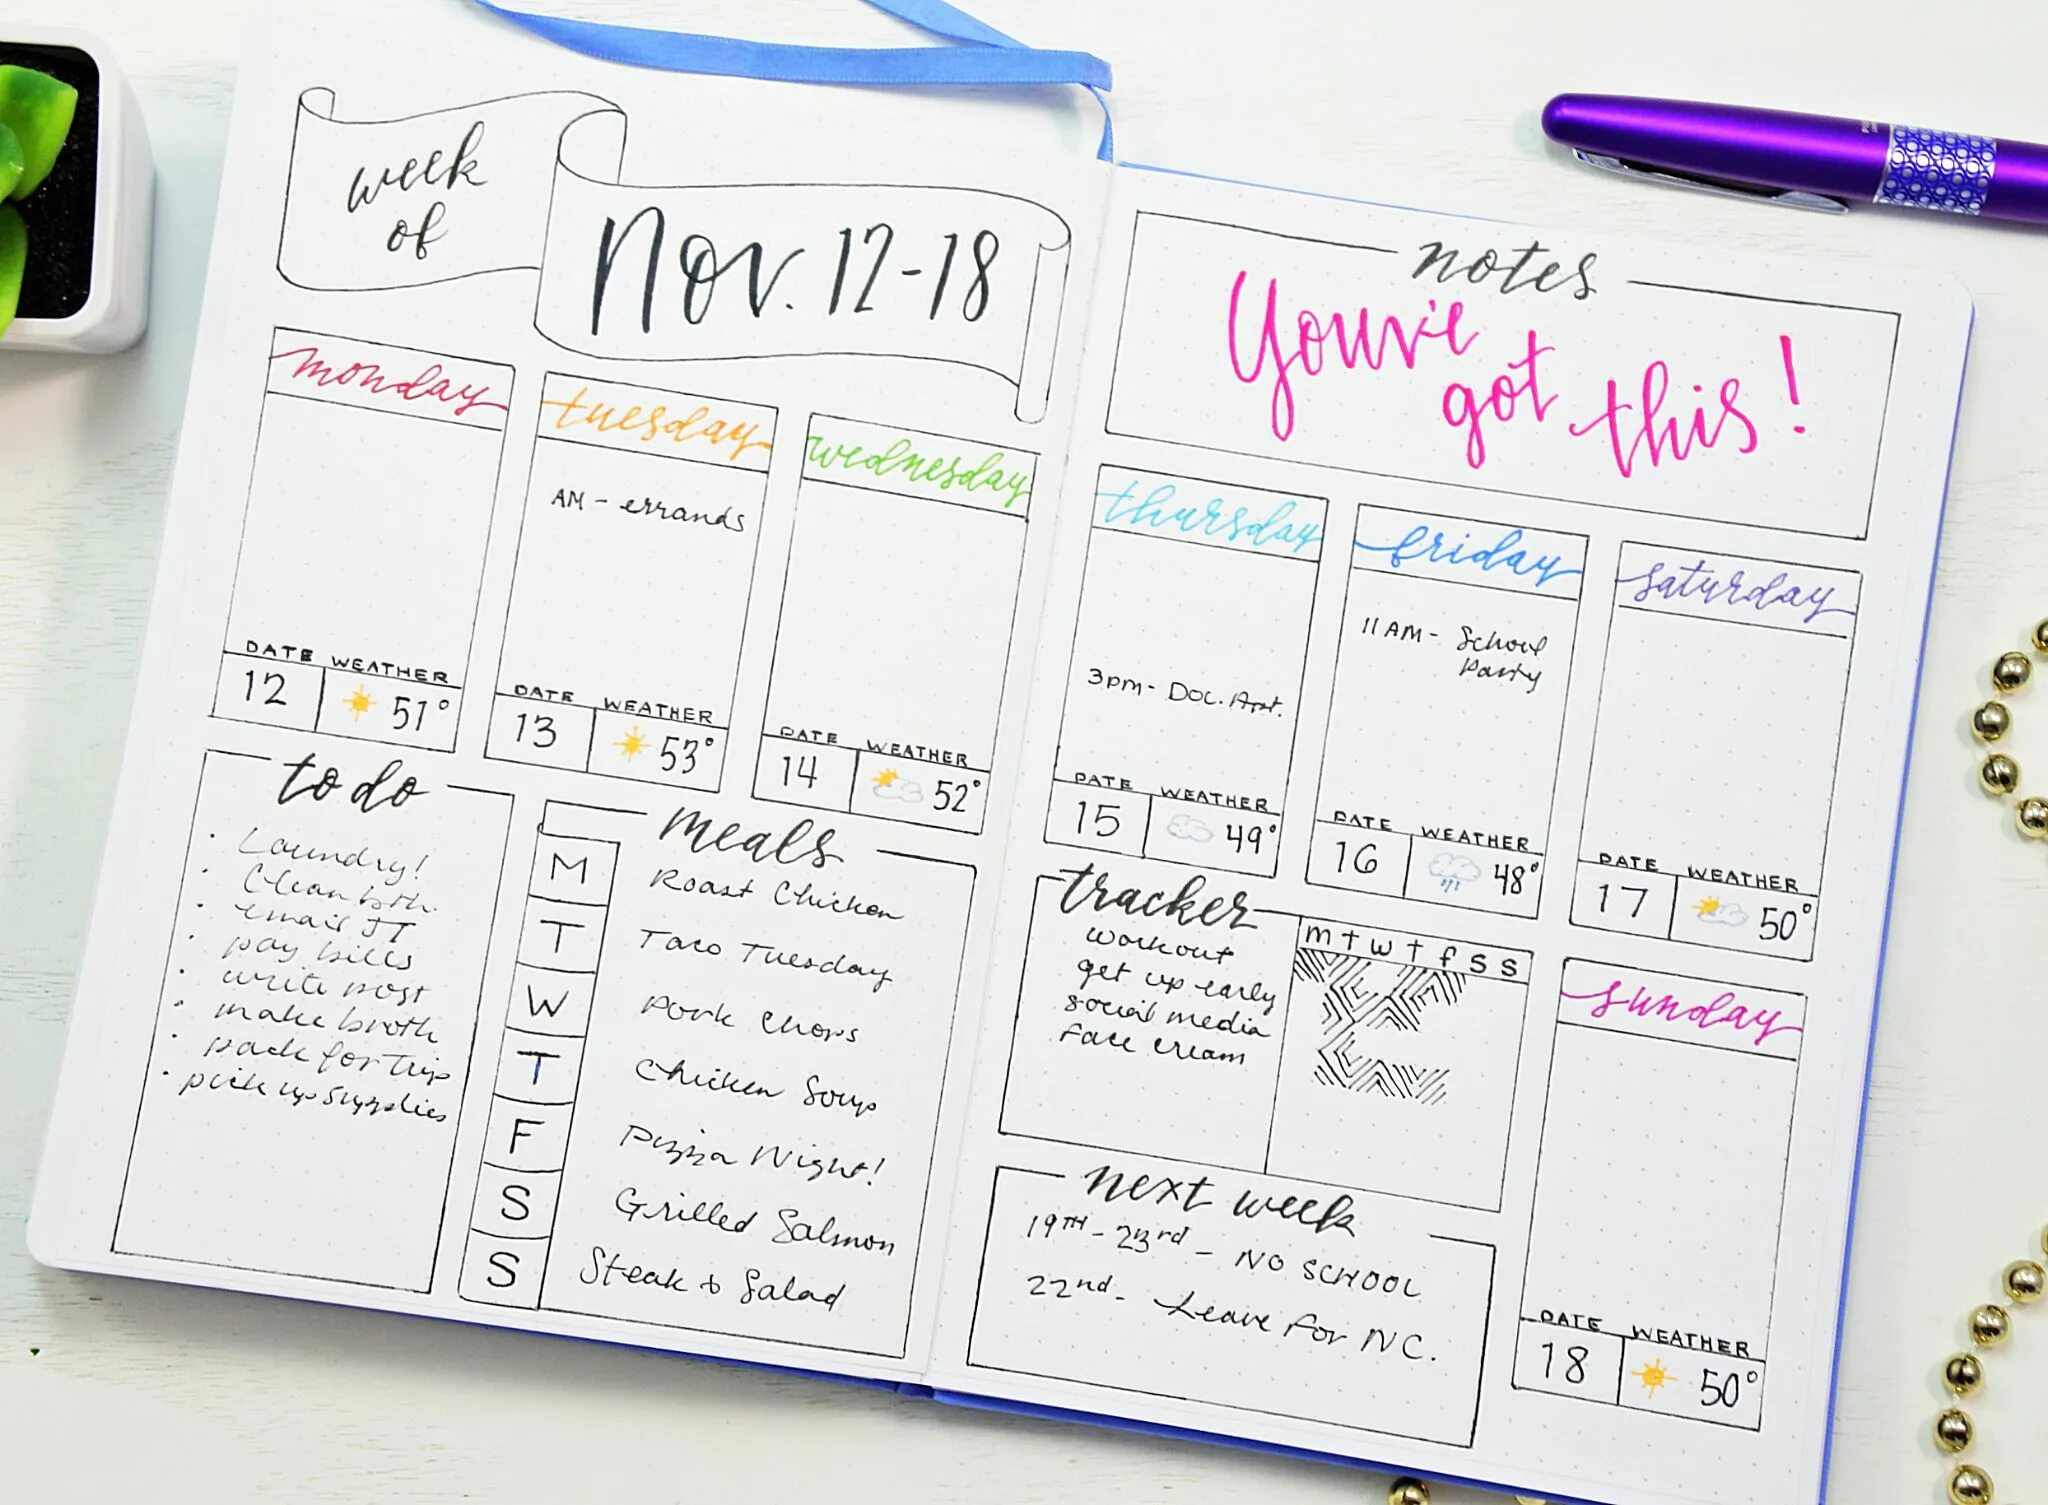 week
of
Nov. 12-18
monday
DATE WEATHER
12 51°
tuesday
AM - errands
DATE WEATHER
13 53°
wednesday
DATE WEATHER
14 52°
to do
· Laundry!
· Clean bth.
· email JT
· pay bills
· write post
· make broth
· pack for trip
· pick up supplies
meals
M Roast Chicken
T Taco Tuesday
W Pork Chops
T Chicken Soup
F Pizza Night!
S Grilled Salmon
S Steak + Salad
notes
You've
got this!
thursday
3pm - Doc. Apt.
DATE WEATHER
15 49°
friday
11 AM - School
Party
DATE WEATHER
16 48°
saturday
DATE WEATHER
17 50°
tracker
m t w t f s s
workout
get up early
social media
face cream
sunday
DATE WEATHER
18 50°
next week
19TH - 23rd - NO SCHOOL
22nd - Leave for NC.